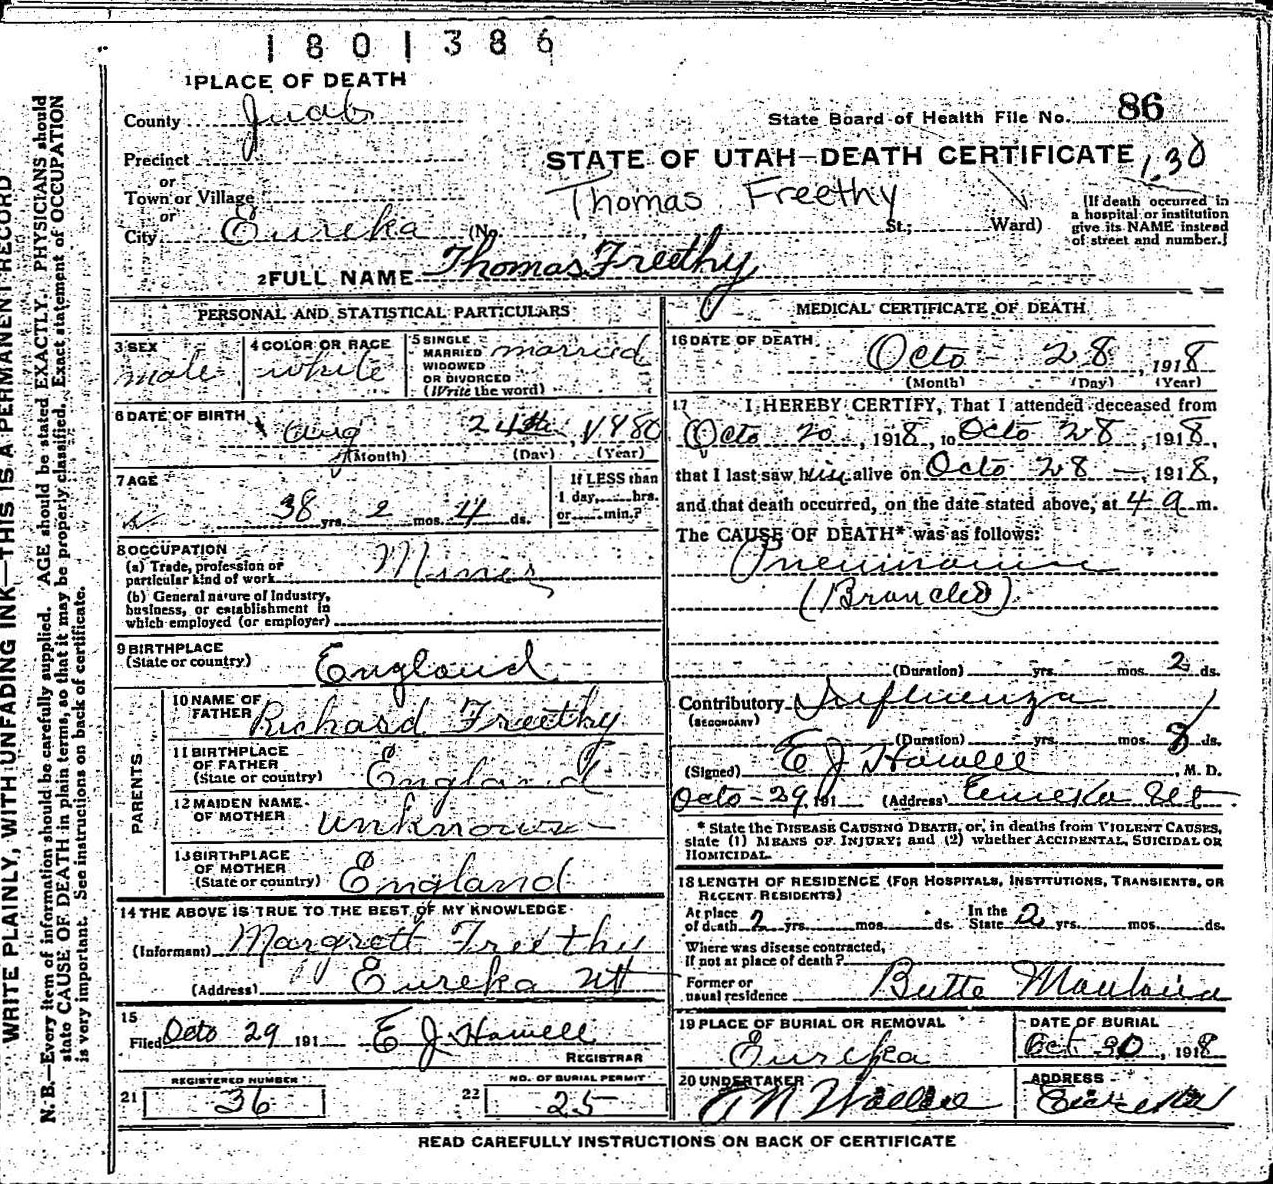 1801386
1 PLACE OF DEATH
County Juab
State Board of Health File No. 86
Precinct
STATE OF UTAH—DEATH CERTIFICATE 130
or
Town or Village
Thomas Freethy
or
City Eureka (No. St.; Ward)
[If death occurred in
a hospital or institution
give its NAME instead
of street and number.]
2 FULL NAME Thomas Freethy
PERSONAL AND STATISTICAL PARTICULARS
3 SEX
male
4 COLOR OR RACE
white
5 SINGLE
MARRIED
WIDOWED
OR DIVORCED
(Write the word)
married
6 DATE OF BIRTH
Aug 24th, 1880
(Month) (Day) (Year)
7 AGE
38 yrs. 2 mos. 4 ds.
If LESS than
1 day, hrs.
or min.?
8 OCCUPATION
(a) Trade, profession or
particular kind of work
Miner
(b) General nature of Industry,
business, or establishment in
which employed (or employer)
9 BIRTHPLACE
(State or country)
England
PARENTS
10 NAME OF
FATHER
Richard Freethy
11 BIRTHPLACE
OF FATHER
(State or country)
England
12 MAIDEN NAME
OF MOTHER
unknown
13 BIRTHPLACE
OF MOTHER
(State or country)
England
14 THE ABOVE IS TRUE TO THE BEST OF MY KNOWLEDGE
(Informant) Margrett Freethy
(Address) Eureka Ut
15
Filed Octo 29 191 E J Howell
REGISTRAR
REGISTERED NUMBER
21 36
NO. OF BURIAL PERMIT
22 25
MEDICAL CERTIFICATE OF DEATH
16 DATE OF DEATH
Octo - 28, 1918
(Month) (Day) (Year)
17 I HEREBY CERTIFY, That I attended deceased from
Octo 20, 1918, to Octo 28, 1918,
that I last saw him alive on Octo 28 — 1918,
and that death occurred, on the date stated above, at 4 a m.
The CAUSE OF DEATH* was as follows:
Pneumonia
(Duration) yrs. mos. 2 ds.
Contributory Influenza
(SECONDARY)
(Duration) yrs. mos. 8 ds.
(Signed) E J Howell, M. D.
Octo - 29, 191 (Address) Eureka Ut
* State the DISEASE CAUSING DEATH, or, in deaths from VIOLENT CAUSES,
state (1) MEANS OF INJURY; and (2) whether ACCIDENTAL, SUICIDAL OR
HOMICIDAL.
18 LENGTH OF RESIDENCE (FOR HOSPITALS, INSTITUTIONS, TRANSIENTS, OR
RECENT RESIDENTS)
At place
of death 2 yrs. mos. ds.
In the
State 2 yrs. mos. ds.
Where was disease contracted,
if not at place of death?
Former or
usual residence Butte Montana
19 PLACE OF BURIAL OR REMOVAL
Eureka
DATE OF BURIAL
Oct 30, 1918
20 UNDERTAKER
ADDRESS
Eureka
READ CAREFULLY INSTRUCTIONS ON BACK OF CERTIFICATE
WRITE PLAINLY, WITH UNFADING INK—THIS IS A PERMANENT RECORD
N. B.—Every item of information should be carefully supplied. AGE should be stated EXACTLY. PHYSICIANS should
state CAUSE OF DEATH in plain terms, so that it may be properly classified. Exact statement of OCCUPATION
is very important. See instructions on back of certificate.